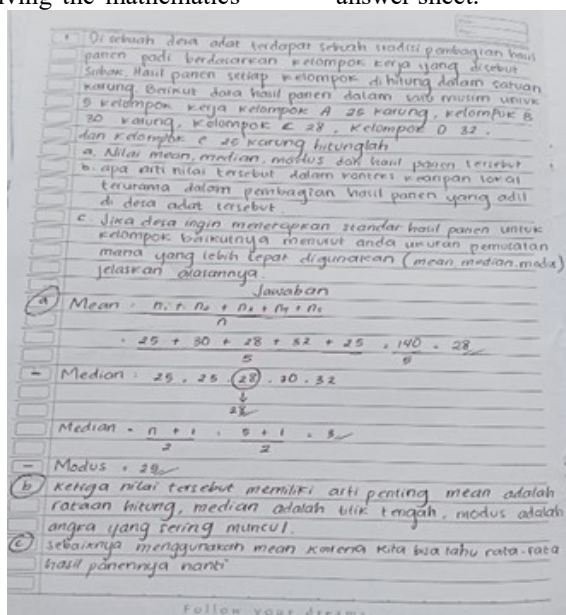 ving the mathematics answer sheet.
Di sebuah desa adat terdapat sebuah tradisi pembagian hasil
panen padi berdasarkan kelompok kerja yang disebut
Subak. Hasil panen setiap kelompok dihitung dalam satuan
karung. Berikut data hasil panen dalam satu musim untuk
5 kelompok kerja kelompok A 25 karung, kelompok B
30 karung, kelompok C 28, kelompok D 32,
dan kelompok E 25 karung hitunglah
a. Nilai mean, median, modus dari hasil panen tersebut
b. apa arti nilai tersebut dalam konteks kearipan lokal
terutama dalam pembagian hasil panen yang adil
di desa adat tersebut.
c. Jika desa ingin menetapkan standar hasil panen untuk
kelompok berikutnya menurut anda ukuran pemusatan
mana yang lebih tepat digunakan (mean, median, modus)
jelaskan alasannya.
Jawaban
a Mean =
n
= 25 + 30 + 28 + 32 + 25 = 140 = 28
5 5
- Median : 25, 25, 28, 30, 32
28
Median = n + 1 = 5 + 1 = 3
2 2
- Modus =
b ketiga nilai tersebut memiliki arti penting mean adalah
rataan hitung, median adalah titik tengah, modus adalah
angka yang sering muncul.
c sebaiknya menggunakan mean karena kita bisa tahu rata-rata
hasil panennya nanti
Follow your dreams